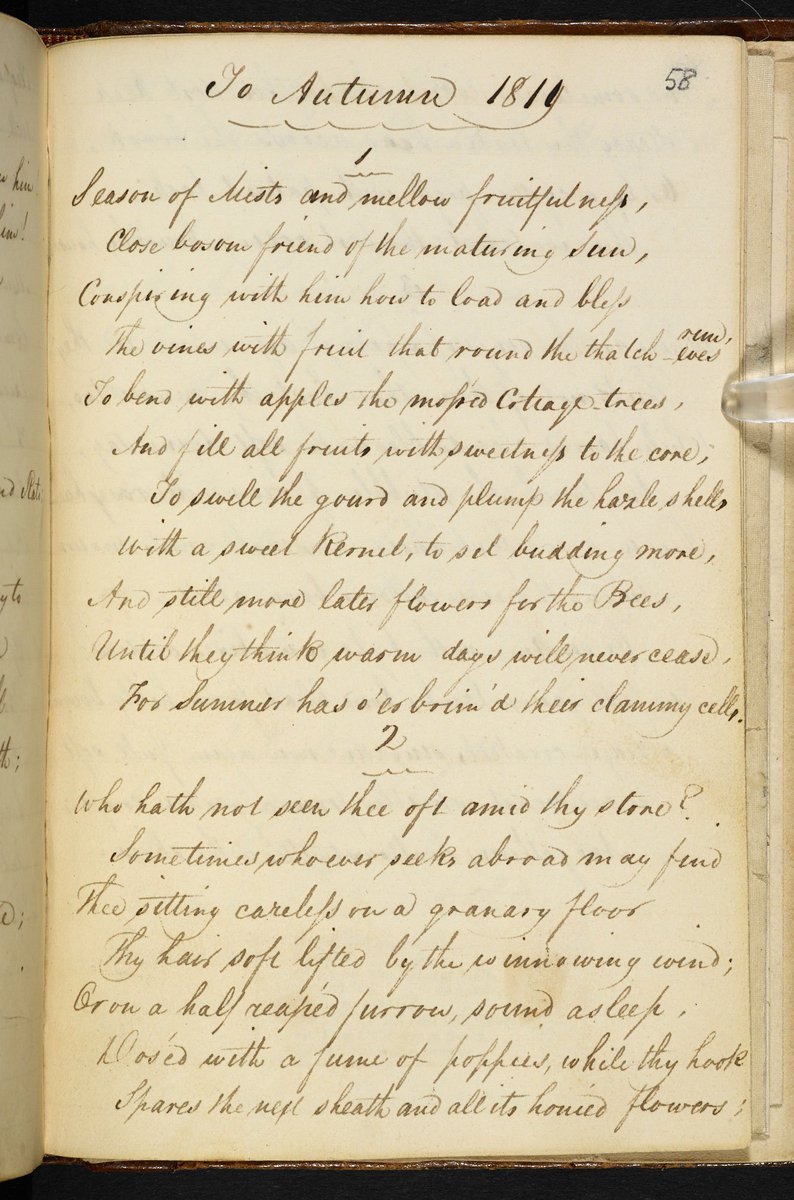 58
To Autumn 1819
1
Season of Mists and mellow fruitfulness,
Close bosom friend of the maturing Sun,
Conspiring with him how to load and bless
The vines with fruit that round the thatch-eves run,
To bend with apples the moss'd Cottage-trees,
And fill all fruits with sweetness to the core,
To swell the gourd and plump the hazle shells
With a sweet kernel, to set budding more,
And still more later flowers for the Bees,
Until they think warm days will never cease,
For Summer has o'erbrim'd their clammy cells.
2
Who hath not seen thee oft amid thy store?
Sometimes whoever seeks abroad may find
Thee sitting careless on a granary floor
Thy hair soft lifted by the winnowing wind;
Or on a half reap'd furrow, sound asleep,
Dos'ed with a fume of poppies, while thy hook
Spares the next sheath and all its honied flowers;
him!
him!